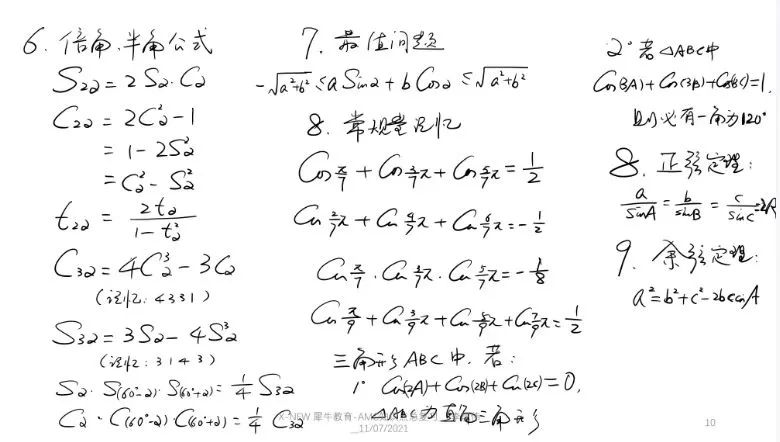 6. 倍角、半角公式
S₂α = 2Sα·Cα
C₂α = 2Cα² - 1
= 1 - 2Sα²
= Cα² - Sα²
t₂α = 2tα / (1 - tα²)
C₃α = 4Cα³ - 3Cα
(记忆: 4331)
S₃α = 3Sα - 4Sα³
(记忆: 3143)
Sα·S(60°-α)·S(60°+α) = 1/4 S₃α
Cα·C(60°-α)C(60°+α) = 1/4 C₃α
7. 最值问题
-√(a²+b²) ≤ a Sinα + b Cosα ≤ √(a²+b²)
8. 常规量记忆
Cos π/7 + Cos 3/7π + Cos 5/7π = 1/2
Cos 2/7π + Cos 4/7π + Cos 6/7π = -1/2
Cos π/7 · Cos 3/7π · Cos 5/7π = -1/8
Cos π/9 + Cos 3/9π + Cos 5/9π + Cos 7/9π = 1/2
三角形ABC中, 若:
1° Cos(2A) + Cos(2B) + Cos(2C) = 0,
△ABC为直角三角形
2° 若△ABC中
Cos(3A) + Cos(3B) + Cos(3C) = 1,
则必有一角为120°
8. 正弦定理:
a/SinA = b/SinB = c/SinC = 2R
9. 余弦定理:
a² = b² + c² - 2bccosA
X-NEW 犀牛教育-AM
11/07/2021
10